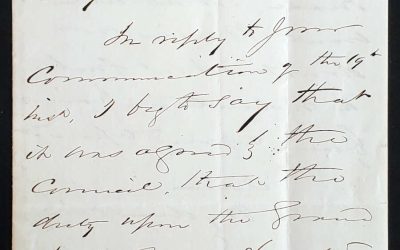 In reply to your
Communication of the 19th
inst, I beg to say that
it was agreed by the
Council, that the
duty upon the Grand